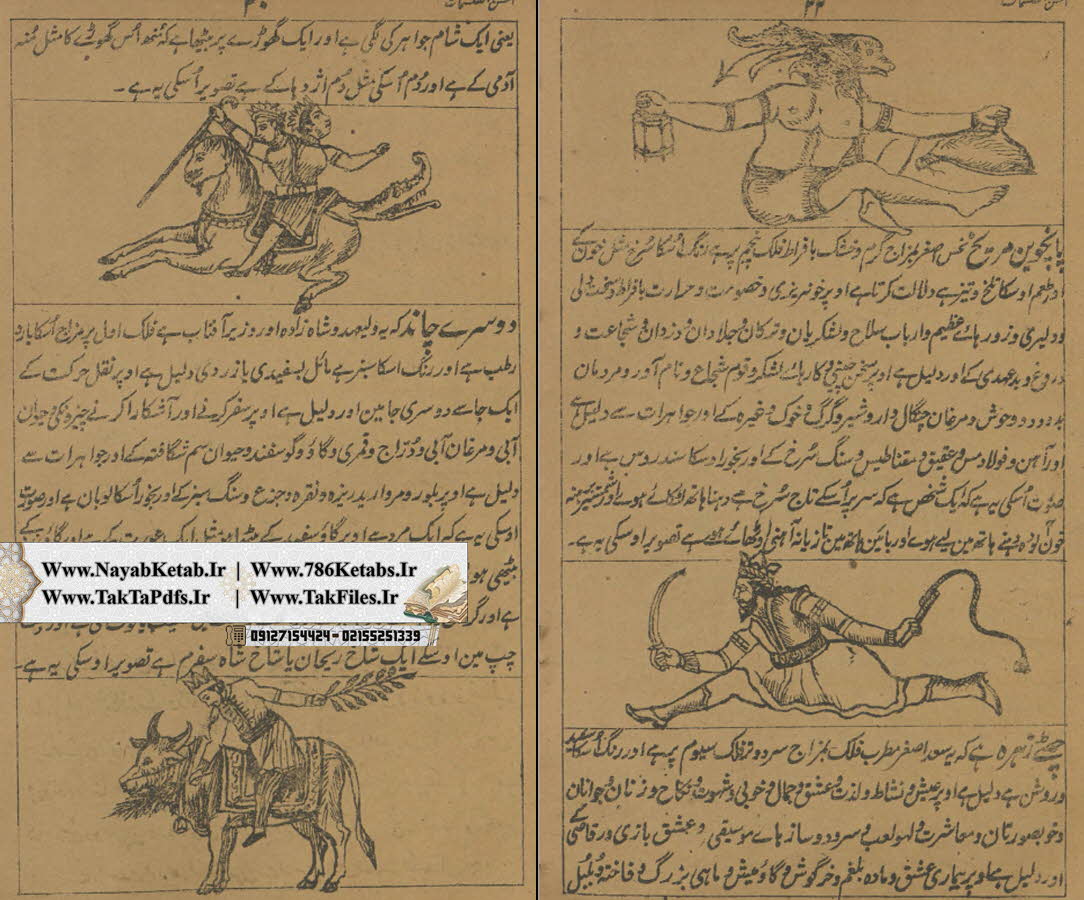 یعنی ایک شام جواہر کی لگی ہے اور ایک گھوڑے پر بیٹھا ہے کہ منھ اُس گھوڑے کا مثل مُنہ
آدمی کے ہے اور دُم اُسکی مثل دُم اژدہا کے ہے تصویر اُسکی یہ ہے ۔
دوسرے چاند کہ یہ ولیعہد و شاہ زادہ اور وزیر آفتاب ہے فلک اول پر مزاج اُسکا بارد
رطب ہے اور رنگ اسکا سبز ہے مائل بسفیدی یا زردی دلیل ہے اوپر نقل حرکت کے
ایک جا سے دوسری جا مین اور دلیل ہے اوپر سفر کرنے اور آشکارا کرنے چیزونکی وحیوان
آبی و مرغان آبی و دُرّاج و قمری و گاؤ و گوسفند و حیوان سم شگافتہ کے اور جواہرات سے
دلیل ہے اوپر بلور و مروارید ریزہ و نقرہ و جزع و سنگ سبز کے اور بخور اُسکا لوبان ہے اور صورت
اوسکی یہ ہے کہ ایک مرد ہے اوپر گاؤ سفید کے بیٹھا
بیٹھی ہو
ہے اور
چپ مین اوسکے ایک شاخ ریحان یا شاخ شاہ سفرم ہے تصویر اوسکی یہ ہے۔
www.NayabKetab.Ir | Www.786Ketabs.Ir
Www.TakTaPdfs.Ir | Www.TakFiles.Ir
09127154424 - 02155251339
پانچوین مریخ نحس اصغر بمزاج گرم و خشک بافراط فلک پنجم پر ہے رنگ اُسکا سُرخ مثل خون کے
اور طعم اوسکا تلخ و تیز ہے دلالت کرتا ہے اوپر خونریزی و خصومت و حرارت بافراط و سخت دلی
و دلیری و زور ہائے عظیم و ارباب سلاح و لشکریان و ترکان و جلادان و دزدان و شجاعت و
دروغ و بدعہدی کے اور دلیل ہے اوپر سخن چینی و کارہائے لشکر و قوم شجاع و نام آور و مردمان
بد و دد و وحوش و مرغان چنگال دار و شیر و گرگ و خوک وغیرہ کے اور جواہرات سے دلیل ہے
اور آہن و فولاد و مس و عقیق و مقناطیس و سنگ سُرخ کے اور بخور اوسکا سندروس ہے اور
صورت اُسکی یہ ہے کہ ایک شخص ہے کہ سر پر اُسکے تاج سُرخ ہے دہنا ہاتھ لٹکائے ہوئے اور شمشیر برہنہ
خون آلودہ دہنے ہاتھ مین لیے ہوے اور بائین ہاتھ مین تازیانہ آہنی اوٹھائے ہوے ہے تصویر اوسکی یہ ہے۔
چھٹے زہرہ ہے کہ یہ سعد اصغر مطرب فلک بمزاج سرد و تر فلک سیوم پر ہے اور رنگ اُسکا سفید
و روشن ہے دلیل ہے اوپر عیش و نشاط و لذت و عشق و جمال و خوبی و شہوت و نکاح و زنان و جوانان
و خوبصورتان و معاشرت و لہو لعب و سرود و سازہاے موسیقی و عشق بازی و رقاصی کے
اور دلیل ہے اوپر بیماری عشق و مادہ بلغم و خرگوش و گاؤمیش و ماہی بزرگ و فاختہ و بلبل